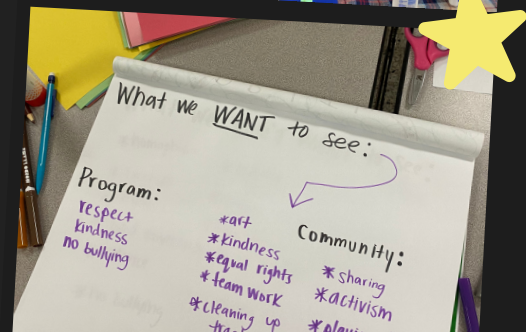 What we WANT to see:
Program:
respect
kindness
no bullying
*art
*kindness
*equal rights
*team work
*cleaning up
Community:
*sharing
*activism